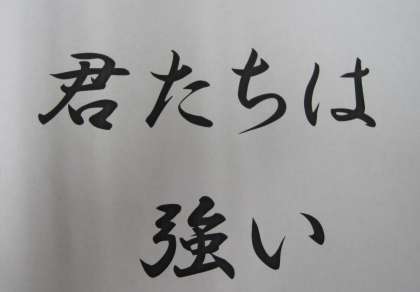 君たちは
強い